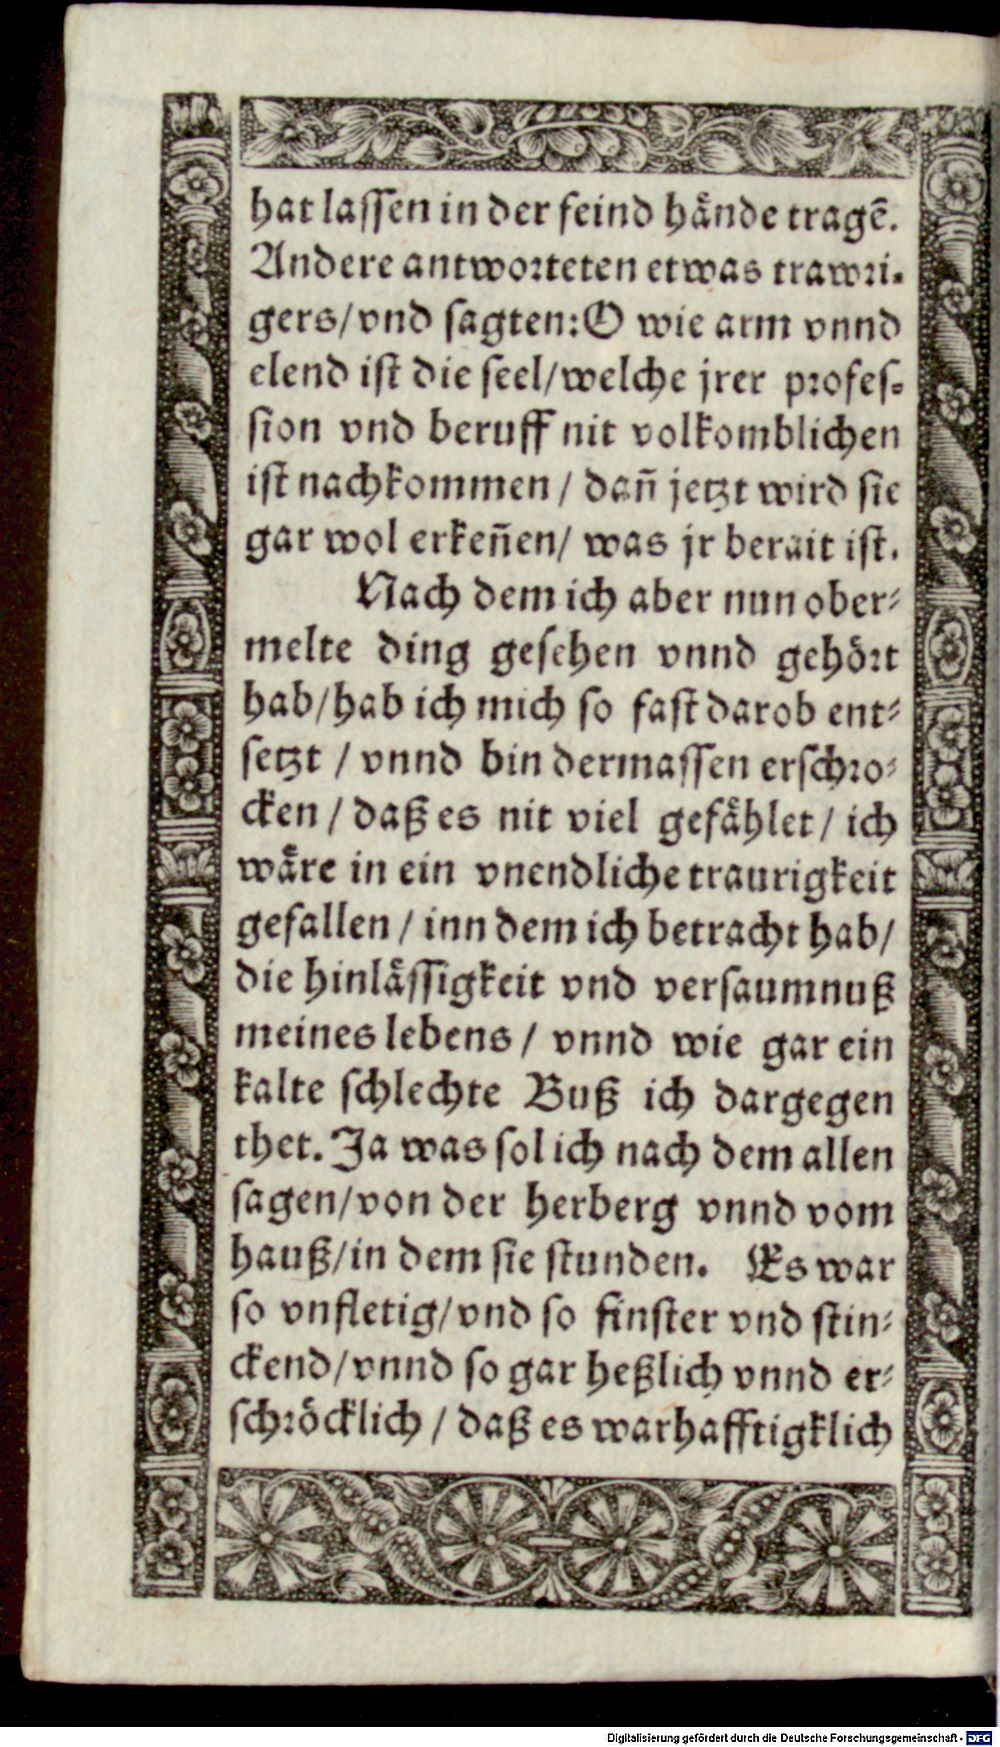 hat lassen in der feind hände tragẽ.
Andere antworteten etwas trawri-
gers/vnd sagten: O wie arm vnnd
elend ist die seel/welche jrer profes-
sion vnd beruff nit volkomblichen
ist nachkommen / dañ jetzt wird sie
gar wol erkeñen/ was jr berait ist.
Nach dem ich aber nun ober-
melte ding gesehen vnnd gehört
hab/hab ich mich so fast darob ent-
setzt / vnnd bin dermassen erschro-
cken / daß es nit viel gefählet/ ich
wäre in ein vnendliche traurigkeit
gefallen / inn dem ich betracht hab/
die hinlässigkeit vnd versaumnuß
meines lebens / vnnd wie gar ein
kalte schlechte Buß ich dargegen
thet. Ja was sol ich nach dem allen
sagen/von der herberg vnnd vom
hauß/in dem sie stunden. Es war
so vnfletig/vnd so finster vnd stin-
ckend/vnnd so gar heßlich vnnd er-
schröcklich / daß es warhafftigklich
Digitalisierung gefördert durch die Deutsche Forschungsgemeinschaft - DFG